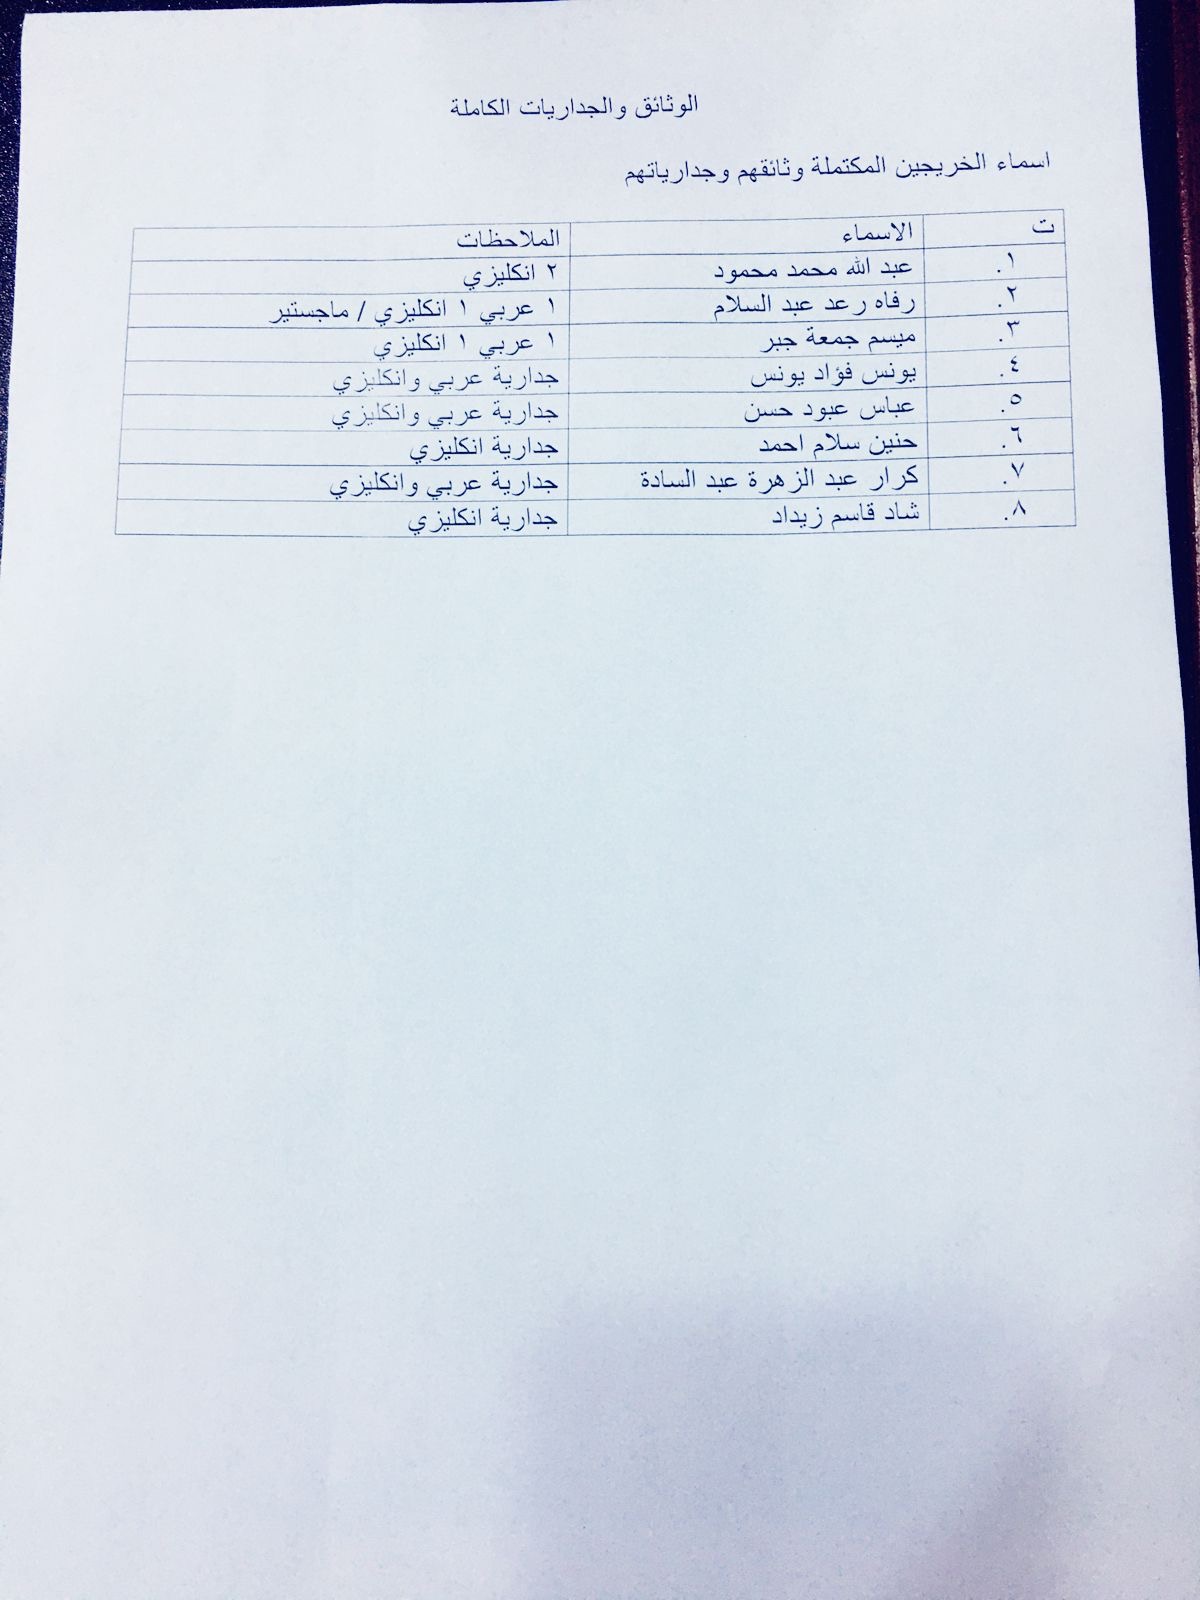 الوثائق والجداريات الكاملة
اسماء الخريجين المكتملة وثائقهم وجدارياتهم
ت الاسماء الملاحظات
١. عبد الله محمد محمود ٢ انكليزي
٢. رفاه رعد عبد السلام ١ عربي ١ انكليزي / ماجستير
٣. ميسم جمعة جبر ١ عربي ١ انكليزي
٤. يونس فؤاد يونس جدارية عربي وانكليزي
٥. عباس عبود حسن جدارية عربي وانكليزي
٦. حنين سلام احمد جدارية انكليزي
٧. كرار عبد الزهرة عبد السادة جدارية عربي وانكليزي
٨. شاد قاسم زيداد جدارية انكليزي